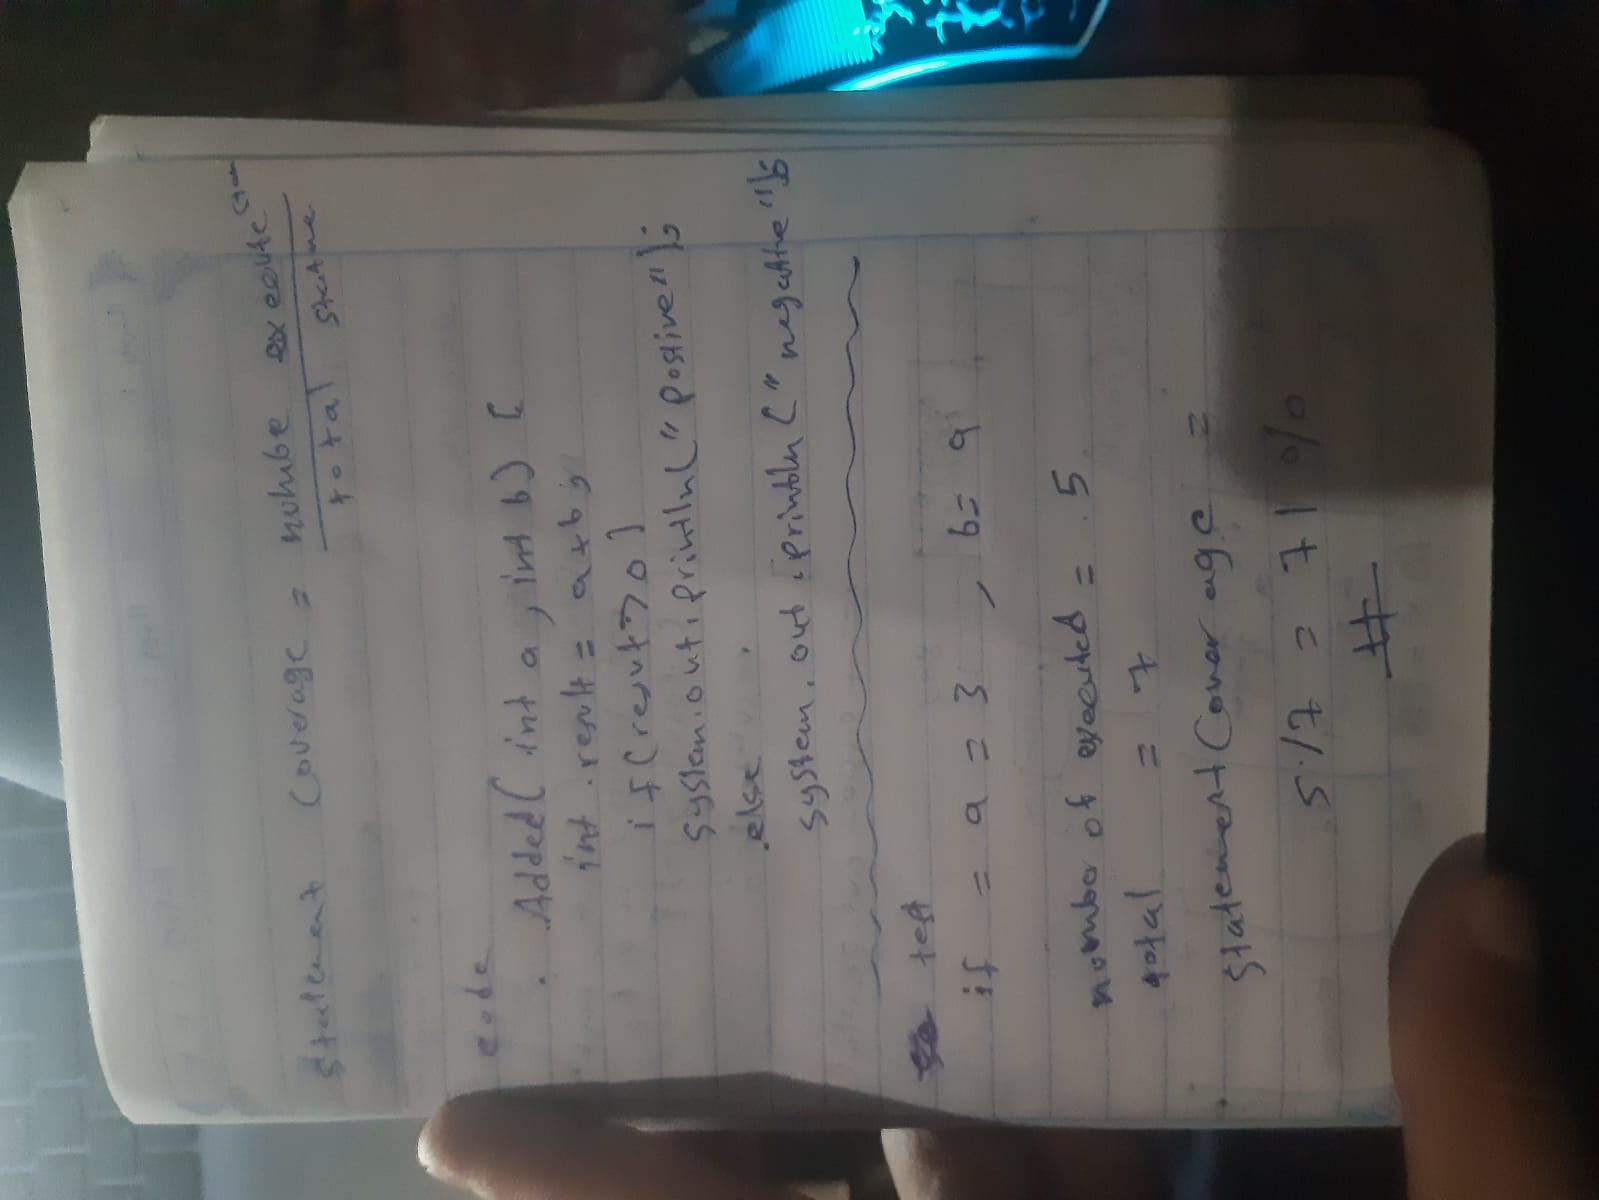 statement coverage = numbe execute
total statme
code
Added( int a , int b) {
int result = a+b;
if (result > 0)
system.out.println("postive");
else
system.out.println("negative");
test
if = a = 3 , b = 9
number of executed = 5
total = 7
statement Conver age =
5/7 = 71%
#